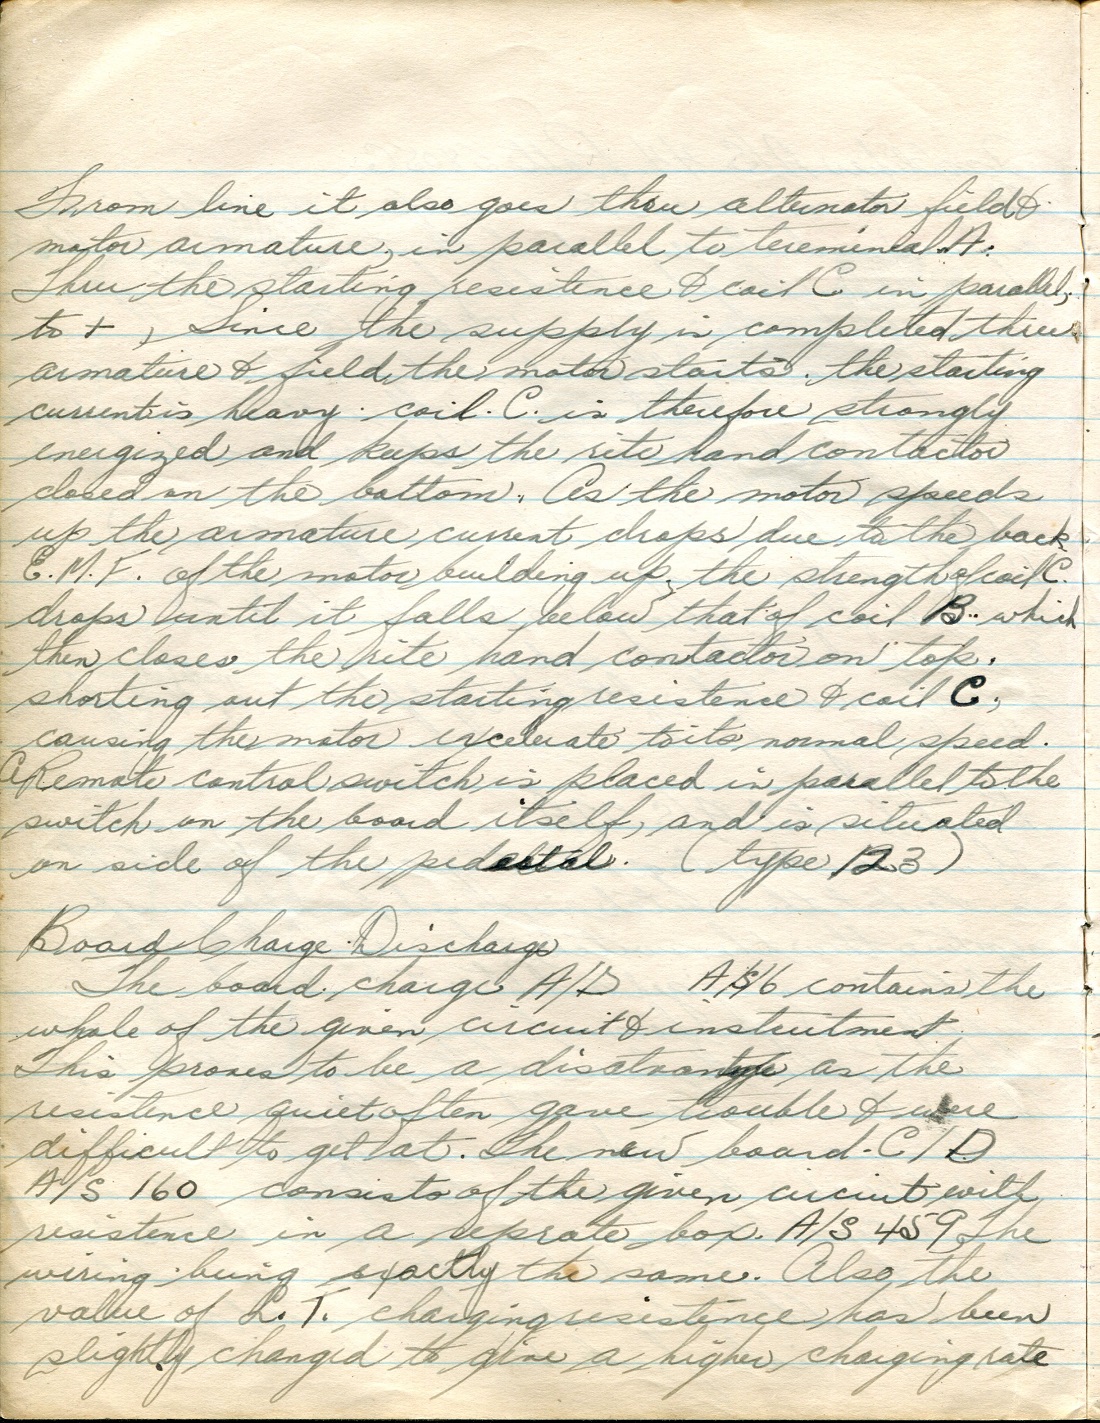 From line it also goes thru alternator field &
motor armature, in parallel to tereminal. A.
Thru the starting resistence & coil C in parallel,
to + , Since the supply is completed thru
armature & field, the motor starts. the starting
current is heavy. coil. C. is therefore strongly
energized and keeps the rite hand contactor
closed on the bottom. As the motor speeds
up the armature current drops due to the back
E.M.F. of the motor building up, the strength of coil C.
drops until it falls below that of coil B. which
then closes the rite hand contactor on top.
shorting out the starting resistence & coil C,
causing the motor excelerate to its normal speed.
A Remote control switch is placed in parallel to the
switch on the board itself, and is situated
on side of the pedestal. (type 123)
Board Charge Discharge
The board charge A/D A/S 16 contains the
whole of the given circuit & instrutment.
This proves to be a disatvantge as the
resistence quiet often gave trouble & were
difficult to get at. The new board - C/D
A/S 160 consists of the given circiut with
resistence in a seprate box. A/S 459 The
wiring being exactly the same. Also the
value of L.T. charging resistence has been
slightly changed to give a higher charging rate